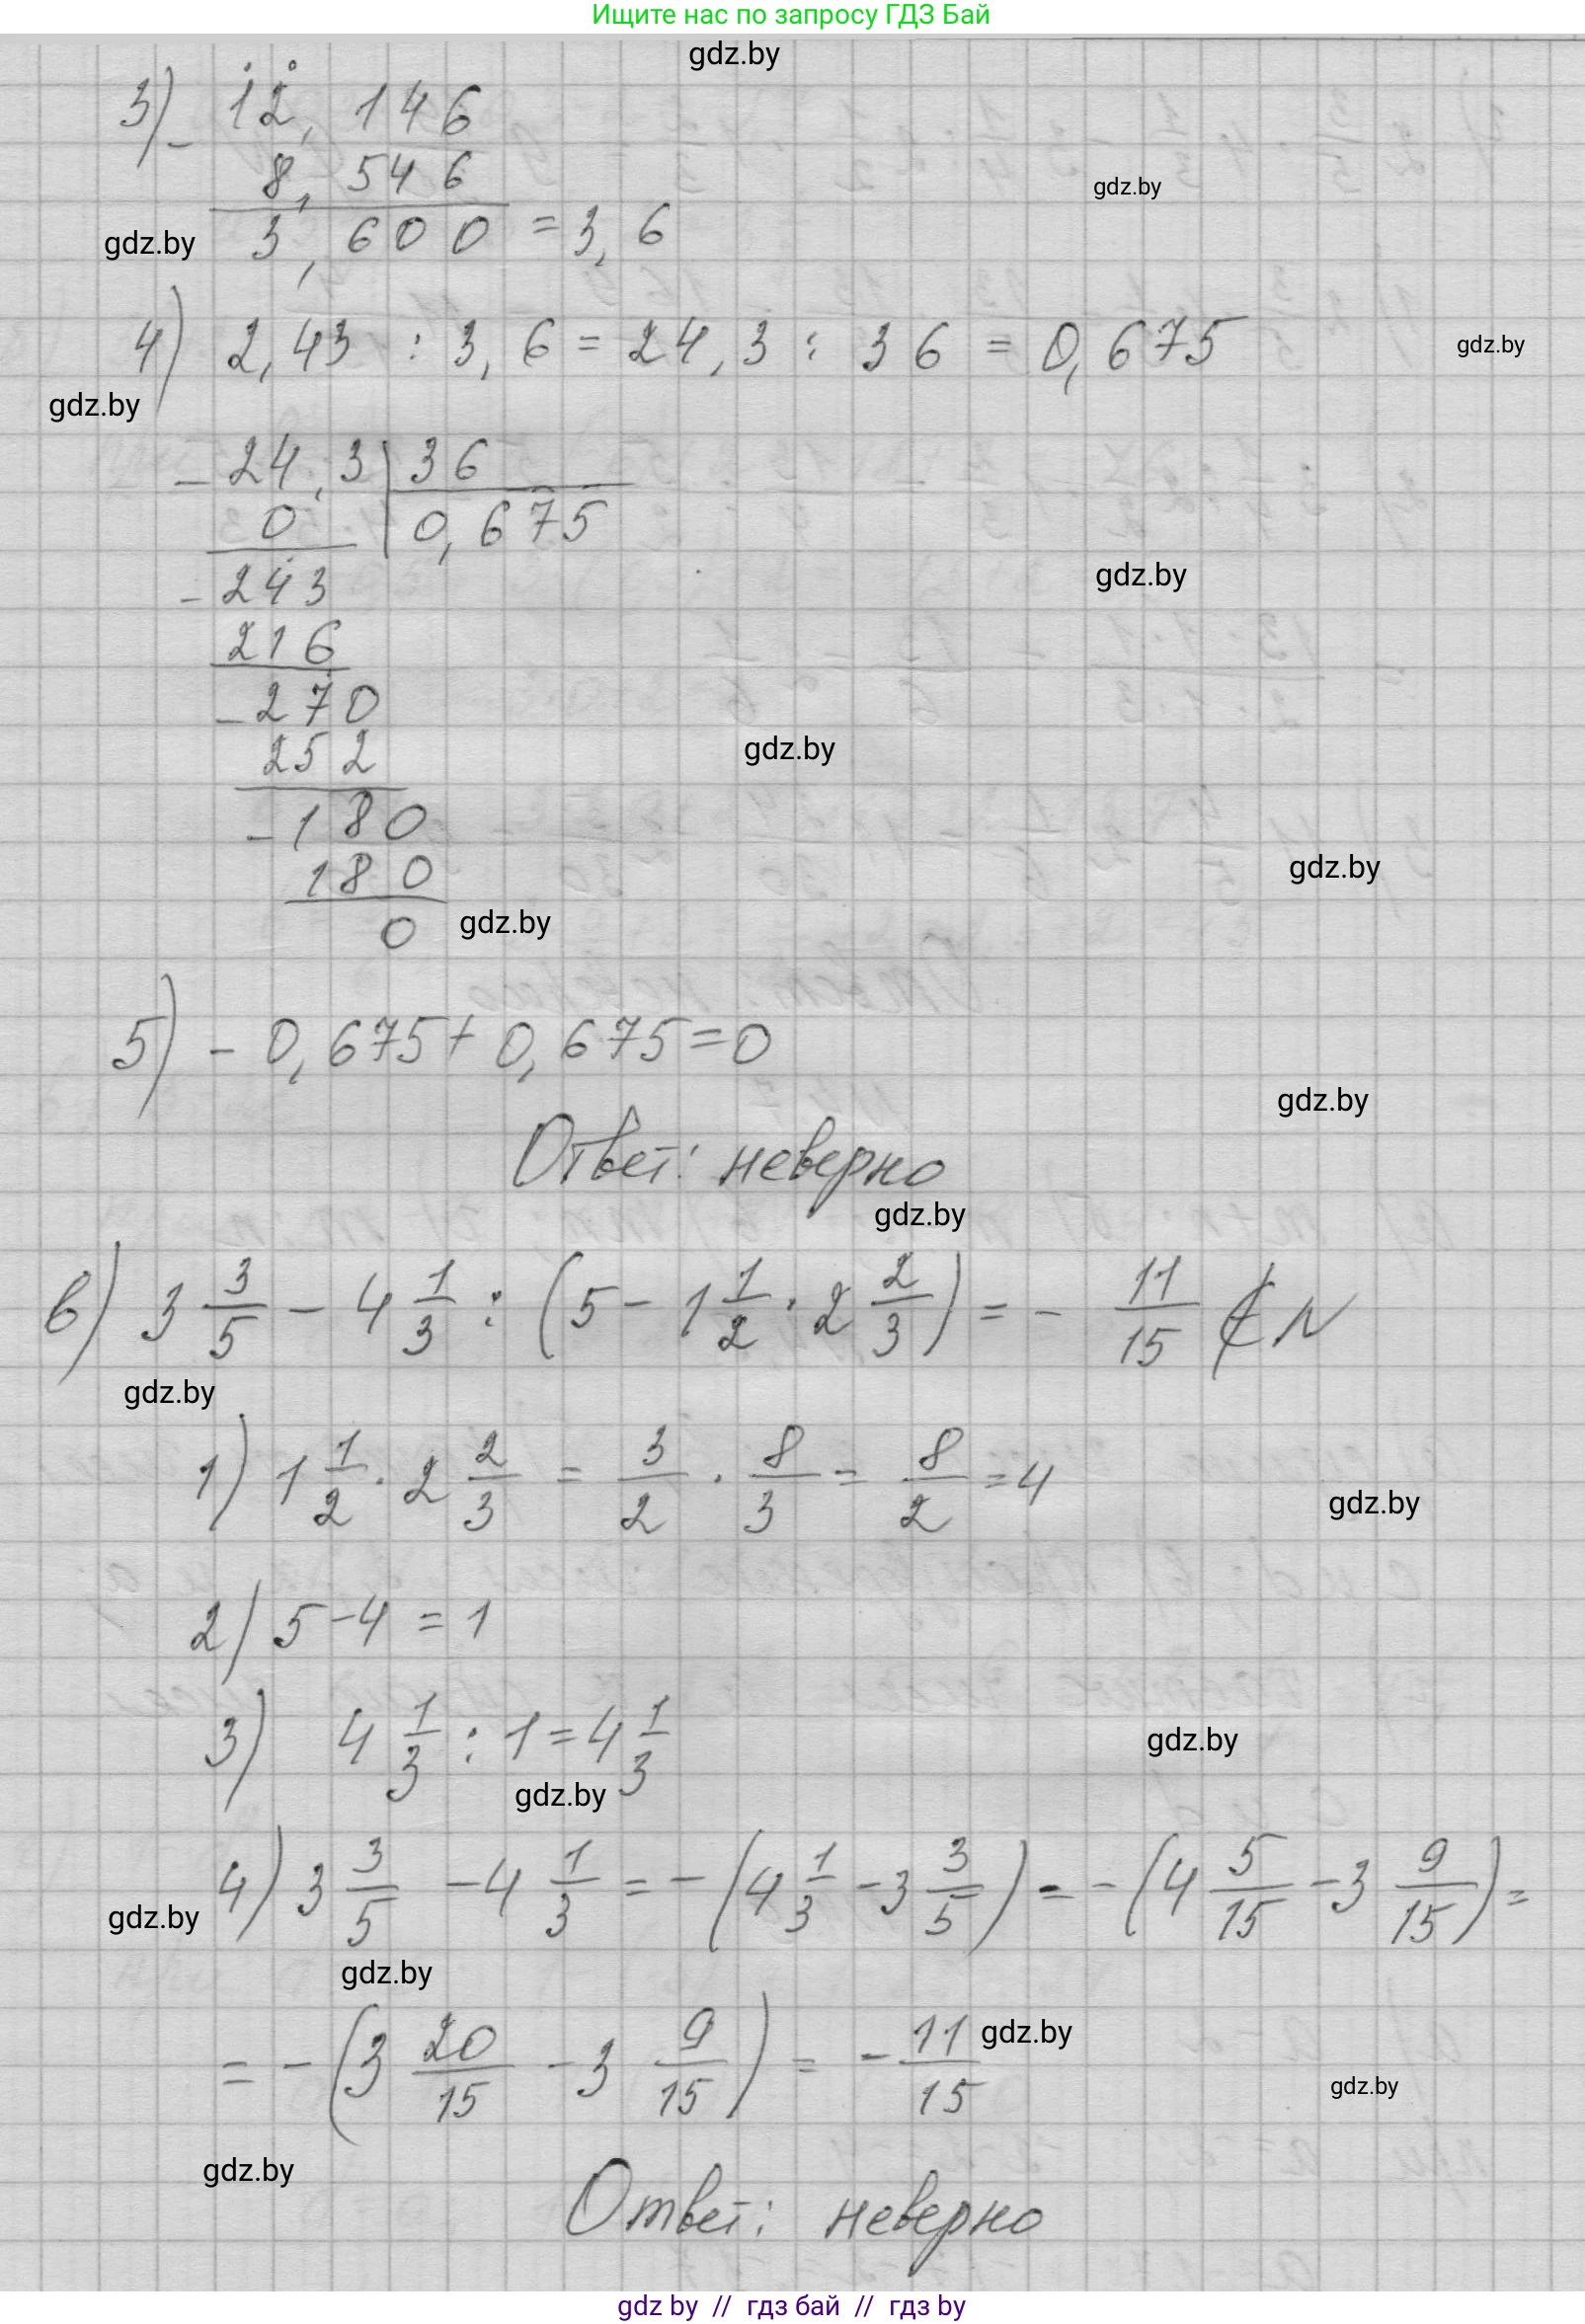 Ищите нас по запросу ГДЗ Бай
gdz.by
3) - 12,146
8,546
gdz.by
gdz.by 3,600 = 3,6
4) 2,43 : 3,6 = 24,3 : 36 = 0,675 gdz.by
gdz.by
- 24,3 | 36
0 | 0,675
- 243 gdz.by
216
- 270
252 gdz.by
- 180
180 gdz.by
0 gdz.by
5) - 0,675 + 0,675 = 0
gdz.by
Ответ: неверно
gdz.by
в) 3 3/5 - 4 1/3 : (5 - 1 1/2 · 2 2/3) = - 11/15 ∉ N
gdz.by
1) 1 1/2 · 2 2/3 = 3/2 · 8/3 = 8/2 = 4
gdz.by
2) 5 - 4 = 1
3) 4 1/3 : 1 = 4 1/3
gdz.by
gdz.by
4) 3 3/5 - 4 1/3 = - (4 1/3 - 3 3/5) = - (4 5/15 - 3 9/15) =
gdz.by
gdz.by
= - (3 20/15 - 3 9/15) = - 11/15
gdz.by
gdz.by
gdz.by
Ответ: неверно
gdz by // гдз бай // гдз by